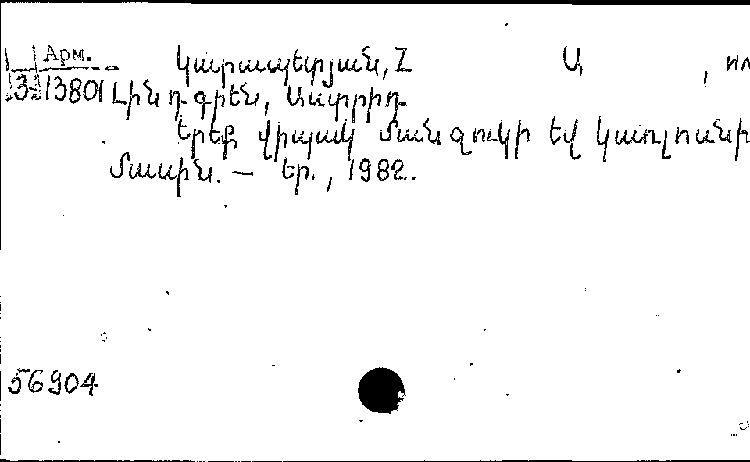 Арм. Կարապետյան, Հ Ա , ил
3-13801 Լինդգրեն, Աստրիդ
Երեք վիպակ մանչուկի եվ կառլսոնի
մասին. — Եր., 1982.
56904